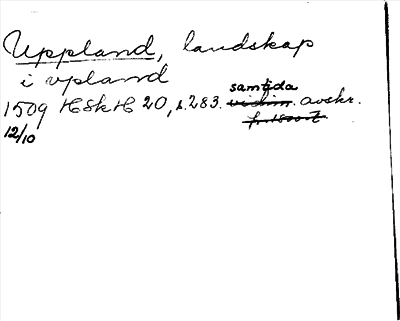 Uppland, landskap
i vpland
1509 HSkH 20, s. 283. samtida avskr.
12/10